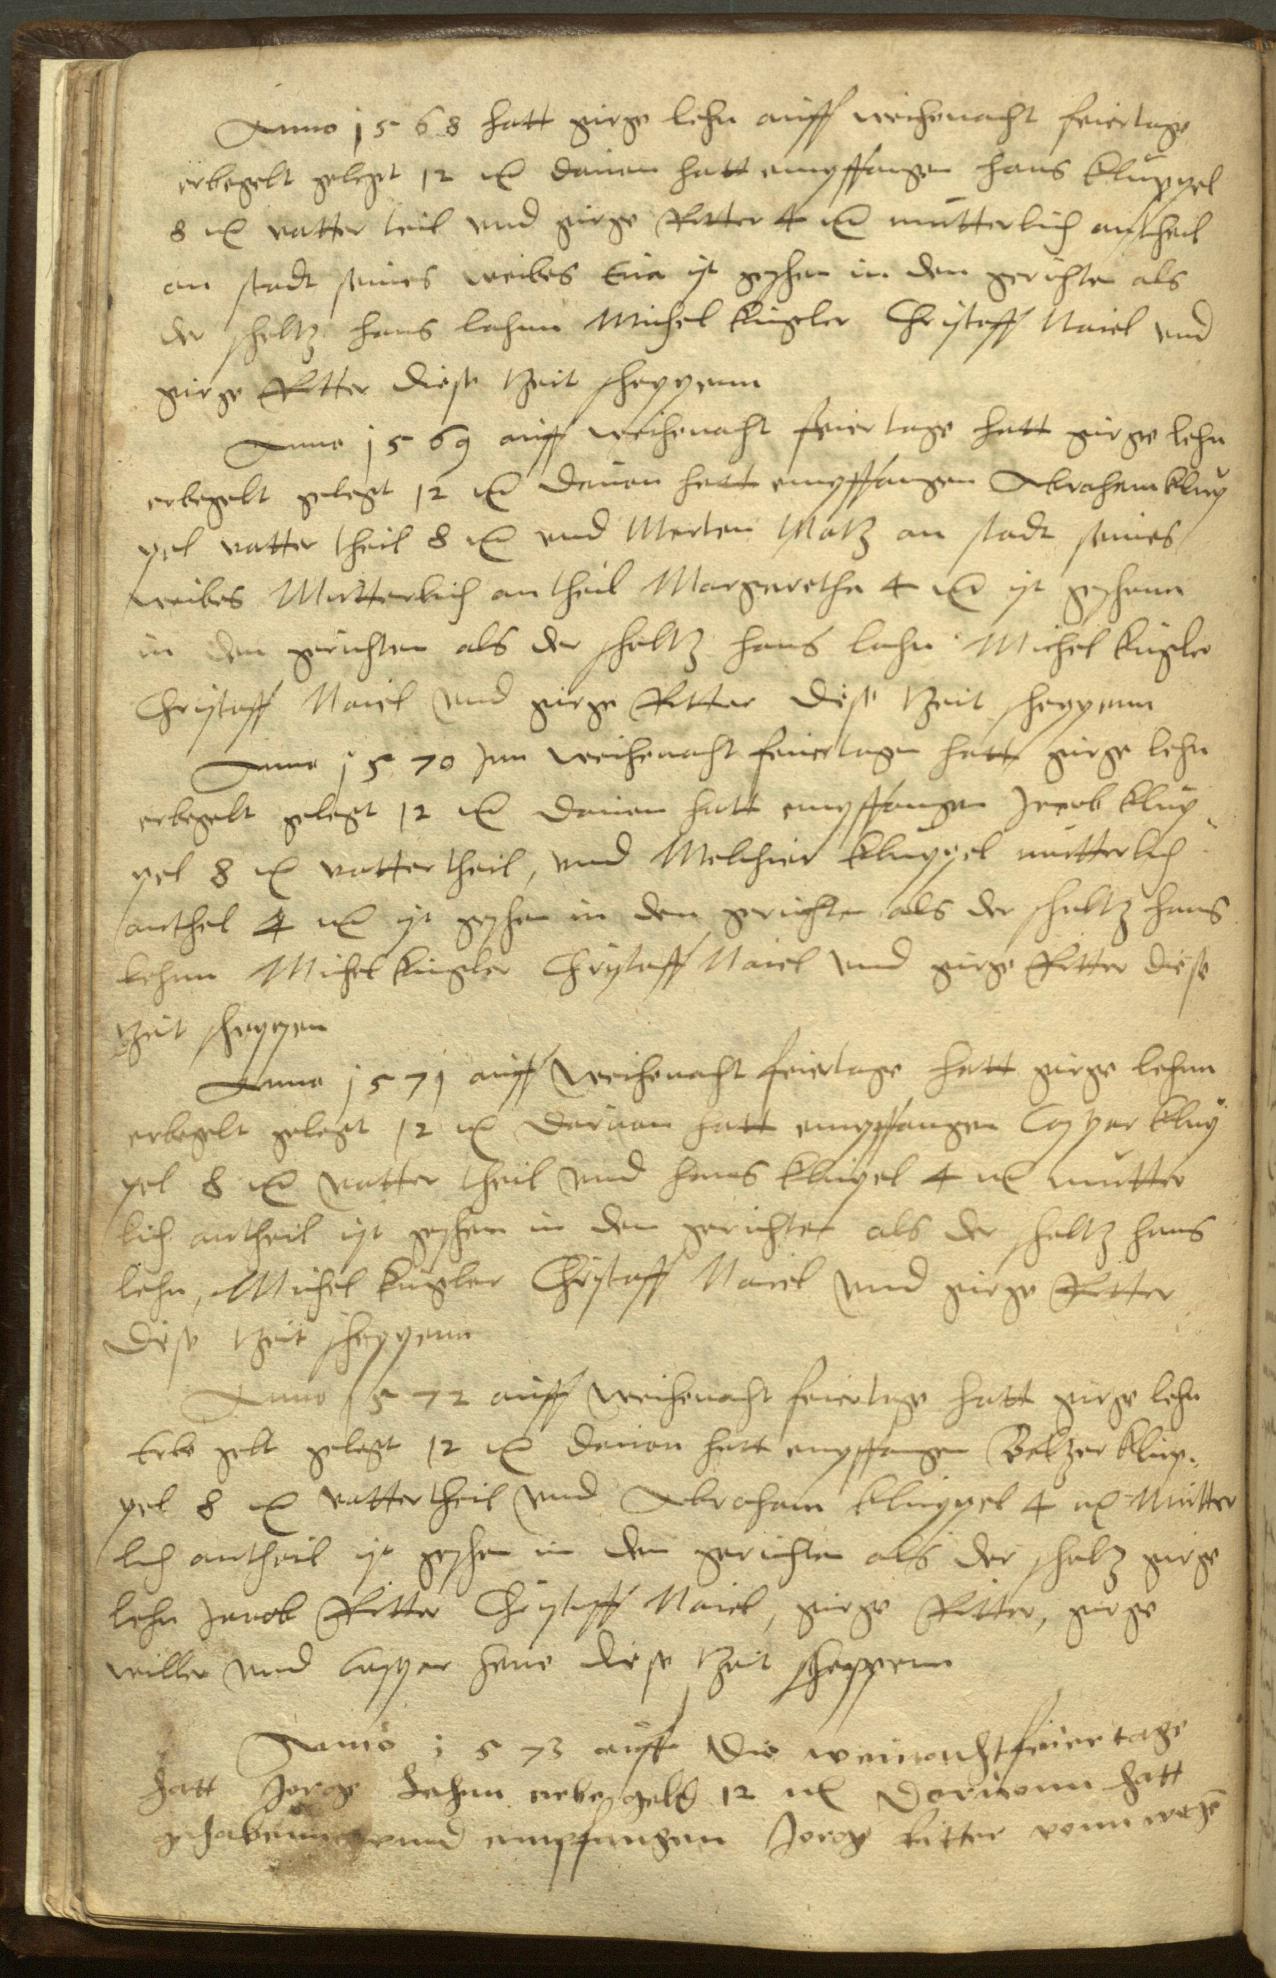 Anno 1568 hatt girge lehn auff weihenacht feiertage
erbegelt gelegt 12 mr dauon hatt empffangen hans kluppel
8 mr vatter teil vnd girge Ritter 4 mr mutterlich antheil
an stadt seines weibes Eua ist geschen in den gerichten als
der scholtz hans lahnn Michel kugler Christoff und
girge Ritter diese tzeit scheppenn
Anno 1569 auff weihenacht feiertage hatt girge lehn
erbegelt gelegt 12 mr dauon hatt empffangen Abraham klup
pel vatter theil 8 mr vnd Merten Matz an stadt seines
weibes Mutterlich antheil Margaretha 4 mr ist geschenn
in den gerichten als der scholtz hans lahn Michel kugler
Christoff vnd girge Ritter diese tzeit scheppenn
Anno 1570 Inn weihenacht feiertagen hatt girge lehn
erbegelt gelegt 12 mr dauon hatt empffangen Jacob klup
pel 8 mr vatter theil, vnd Melchior kluppel mutterlich
anthel 4 mr ist geschen in den gerichten als der scholtz hans
lehnn Michel kugler Christoff vnd girge Ritter diese
tzeit scheppen
Anno 1571 auff weihenacht feiertage hatt girge lehnn
erbegelt gelegt 12 mr daruan hatt empffangen Caspar klup
pel 8 mr vatter theil vnd hans klupel 4 mr mutter
lich antheil ist geschen in den gerichten als der scholtz hans
lehn, Michel kugler Christoff vnd girge Ritter
diese tzeit scheppenn
Anno 1572 auff weihenacht feiertage hatt girge lehn
Erbe gelt gelegt 12 mr dauon hatt empffangen Baltzer klup
pel 8 mr vatter theil vnd Abraham kluppel 4 mr Mutter
lich antheil ist geschen in den gerichten als der scholtz girge
lehn Jacob Ritter Christoff, girge Ritter, girge
willer vnd Caspar diese tzeit scheppenn
Anno 1573 auff die weinachtfeiertage
hatt Jorge Lehnn erbe geld 12 mr Doruonn hatt
vnnd empfangen Jorge Ritter vonn wegen